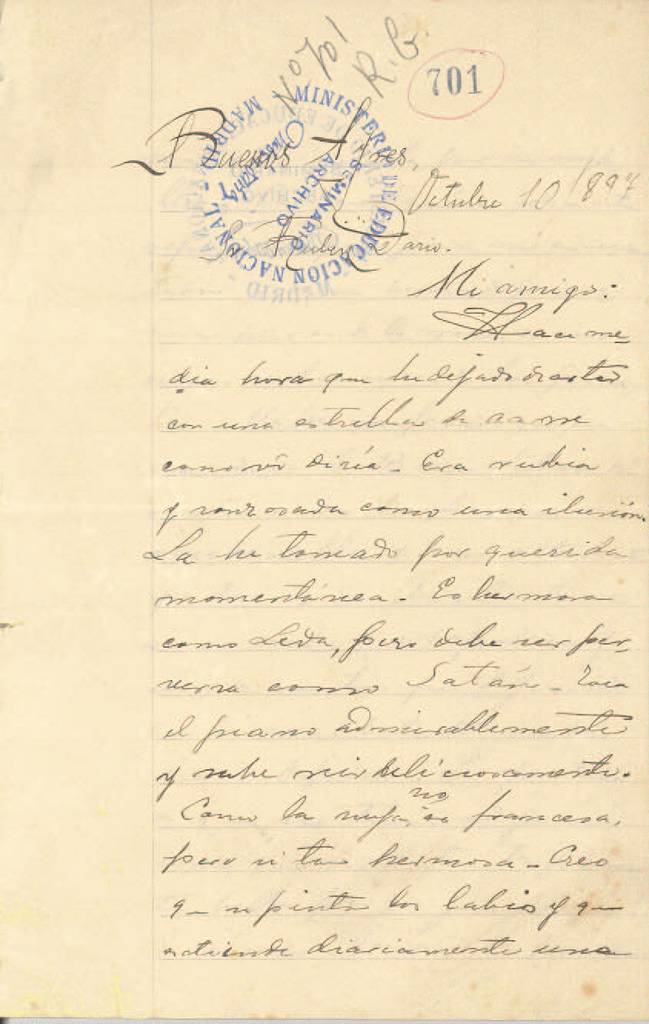 No 701
R. G.
701
MINISTERIO DE EDUCACION NACIONAL
MADRID
SEMINARIO
ARCHIVO
Buenos Aires,
Octubre 10/897
Sr. Rubén Dario.
Mi amigo:
Hace me-
dia hora que he dejado de estar
con una estrella de carne
como vd diría. Era rubia
y sonrosada como una ilusión.
La he tomado por querida
momentánea. Es hermosa
como Leda, pero debe ser per-
versa como Satán. Toca
el piano admirablemente
y sabe reir deliciosamente.
Como la no es francesa,
pero si tan hermosa. Creo
q se pinta los labios y q
extiende diariamente una